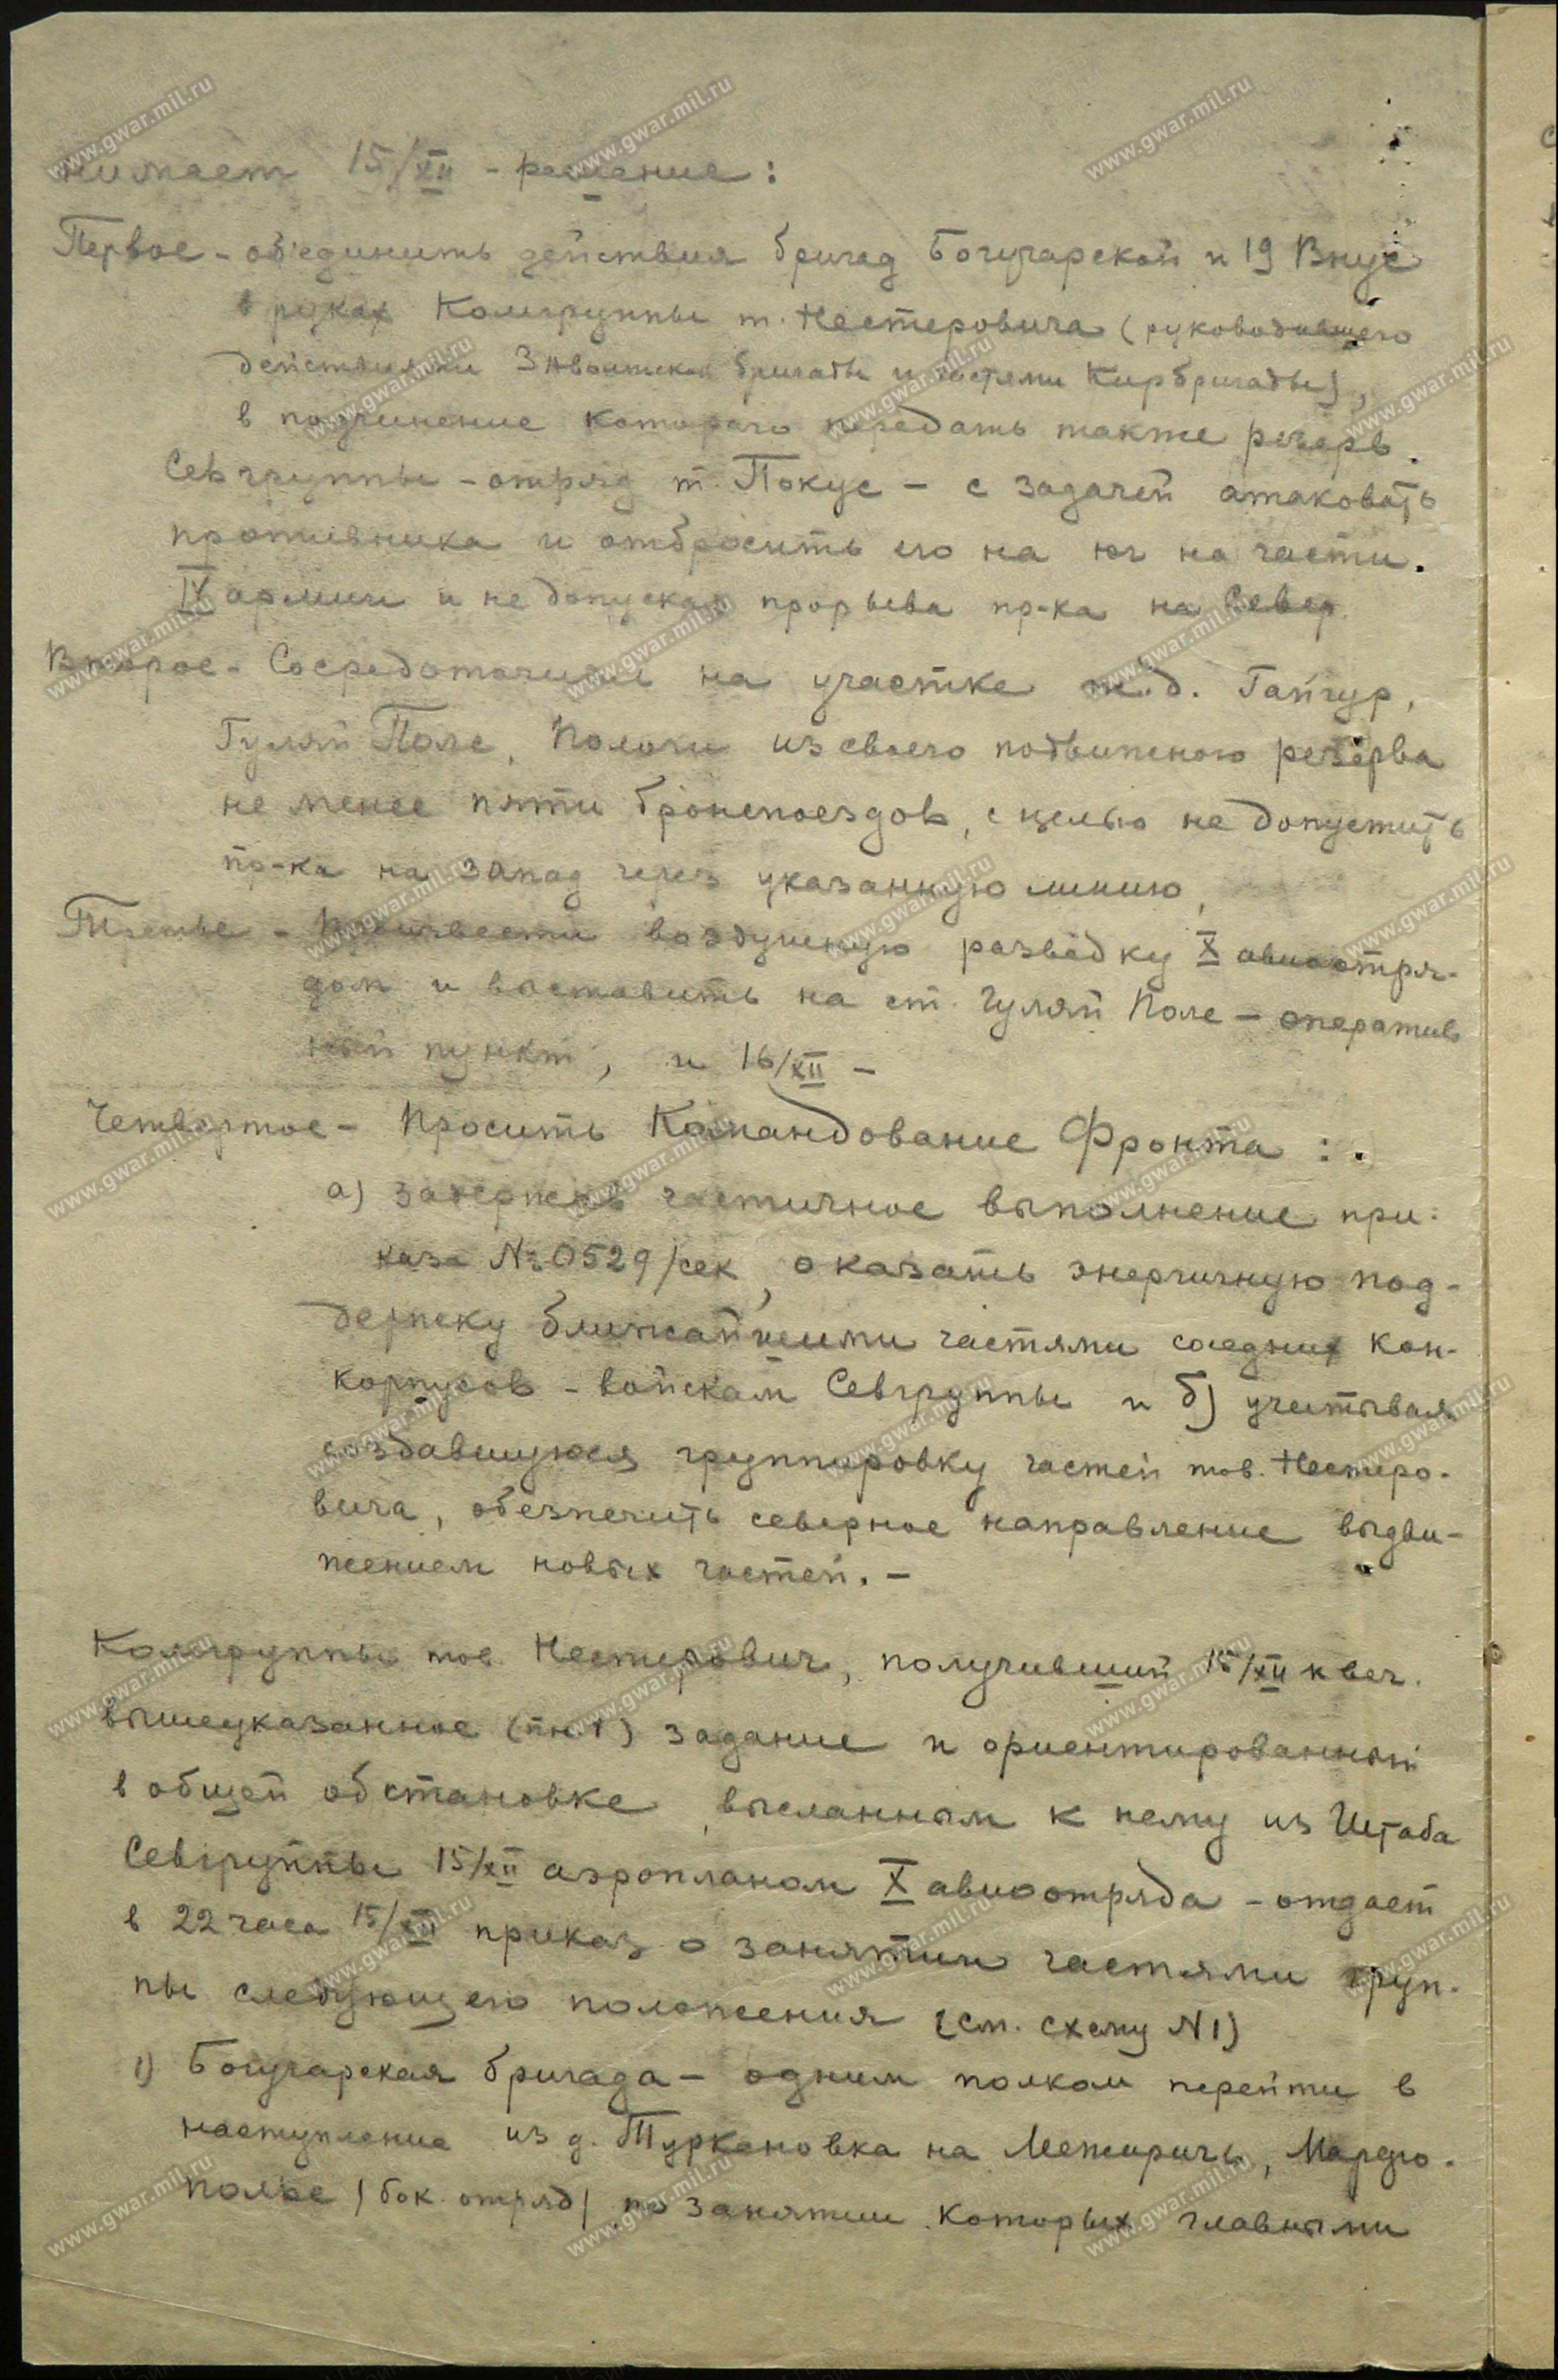 нимает 15/XII - решения:
Первое - об'единить действия бригад Богучарской и 19 Внус
в руках Комгруппы т. Нестеровича (руководившего
действиями 3 бригады и частями Кирбригады),
в подчинение которого передать также резерв
Севгруппы - отряд т. Покус - с задачей атаковать
противника и отбросить его на юг на части
IV армии и не допуская прорыва пр-ка на Север.
Второе - Сосредоточить на участке ж.д. Гайчур,
Гуляй Поле, Пологи из своего подвижного резерва
не менее пяти бронепоездов, с целью не допустить
пр-ка на запад через указанную линию,
Третье - Произвести воздушную разведку X авиаотря-
дом и выставить на ст. Гуляй Поле - оператив
ный пункт, и 16/XII -
Четвертое - Просить Командование Фронта:
а) задержав частичное выполнение при-
каза № 0529/сек, оказать энергичную под-
держку ближайшими частями соседних кон-
корпусов - войскам Севгруппы и б) учитывая
создавшуюся группировку частей тов. Нестеро-
вича, обезпечить северное направление выдви-
жением новых частей. -
Комгруппы тов. Нестерович, получивший 15/XII к веч.
вышеуказанное (пн 1) задание и ориентированный
в общей обстановке, высланным к нему из Штаба
Севгруппы 15/XII аэропланом X авиоотряда - отдает
в 22 часа 15/XII приказ о занятии частями груп-
пы следующего положения (см. схему N 1)
1) Богучарская бригада - одним полком перейти в
наступление из д. Туркеновка на Межиричь, Марфо-
полье (бок. отряд) по занятии которых главными
www.gwar.mil.ru